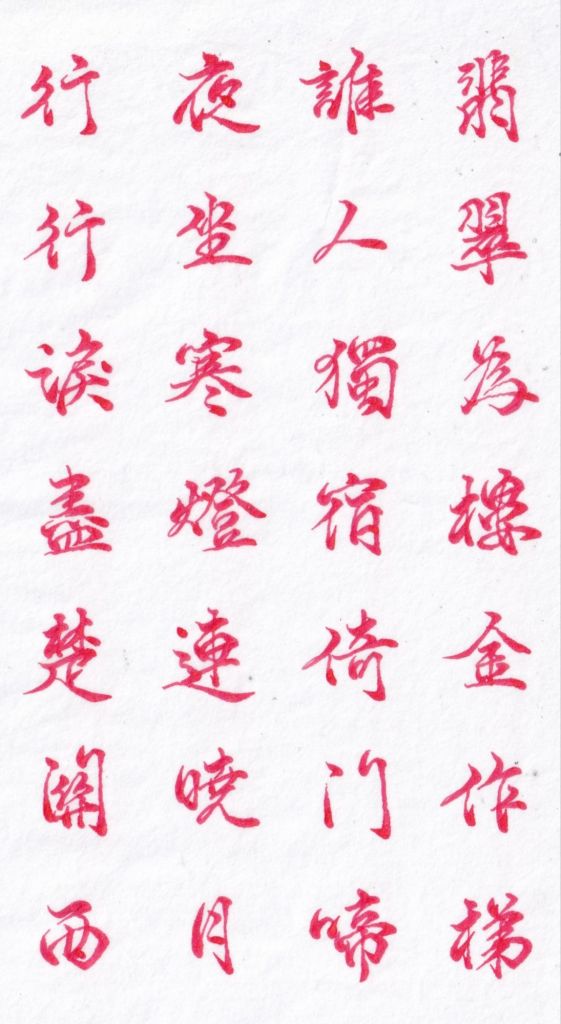 翡翠為樓金作梯
誰人獨宿倚门啼
夜坐寒燈連曉月
行行淚盡楚關西